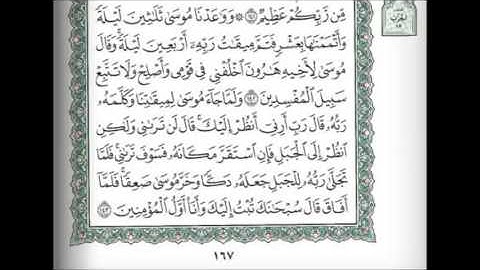 مِّن رَّبِّكُمْ عَظِيمٌ ۝١٤١ ۞ وَوَٰعَدْنَا مُوسَىٰ ثَلَٰثِينَ لَيْلَةً
وَأَتْمَمْنَٰهَا بِعَشْرٍ فَتَمَّ مِيقَٰتُ رَبِّهِۦٓ أَرْبَعِينَ لَيْلَةً ۚ وَقَالَ
مُوسَىٰ لِأَخِيهِ هَٰرُونَ ٱخْلُفْنِى فِى قَوْمِى وَأَصْلِحْ وَلَا تَتَّبِعْ
سَبِيلَ ٱلْمُفْسِدِينَ ۝١٤٢ وَلَمَّا جَآءَ مُوسَىٰ لِمِيقَٰتِنَا وَكَلَّمَهُۥ
رَبُّهُۥ قَالَ رَبِّ أَرِنِىٓ أَنظُرْ إِلَيْكَ ۚ قَالَ لَن تَرَىٰنِى وَلَٰكِنِ
ٱنظُرْ إِلَى ٱلْجَبَلِ فَإِنِ ٱسْتَقَرَّ مَكَانَهُۥ فَسَوْفَ تَرَىٰنِى ۚ فَلَمَّا
تَجَلَّىٰ رَبُّهُۥ لِلْجَبَلِ جَعَلَهُۥ دَكًّا وَخَرَّ مُوسَىٰ صَعِقًا ۚ فَلَمَّآ
أَفَاقَ قَالَ سُبْحَٰنَكَ تُبْتُ إِلَيْكَ وَأَنَا۠ أَوَّلُ ٱلْمُؤْمِنِينَ ۝١٤٣
١٦٧